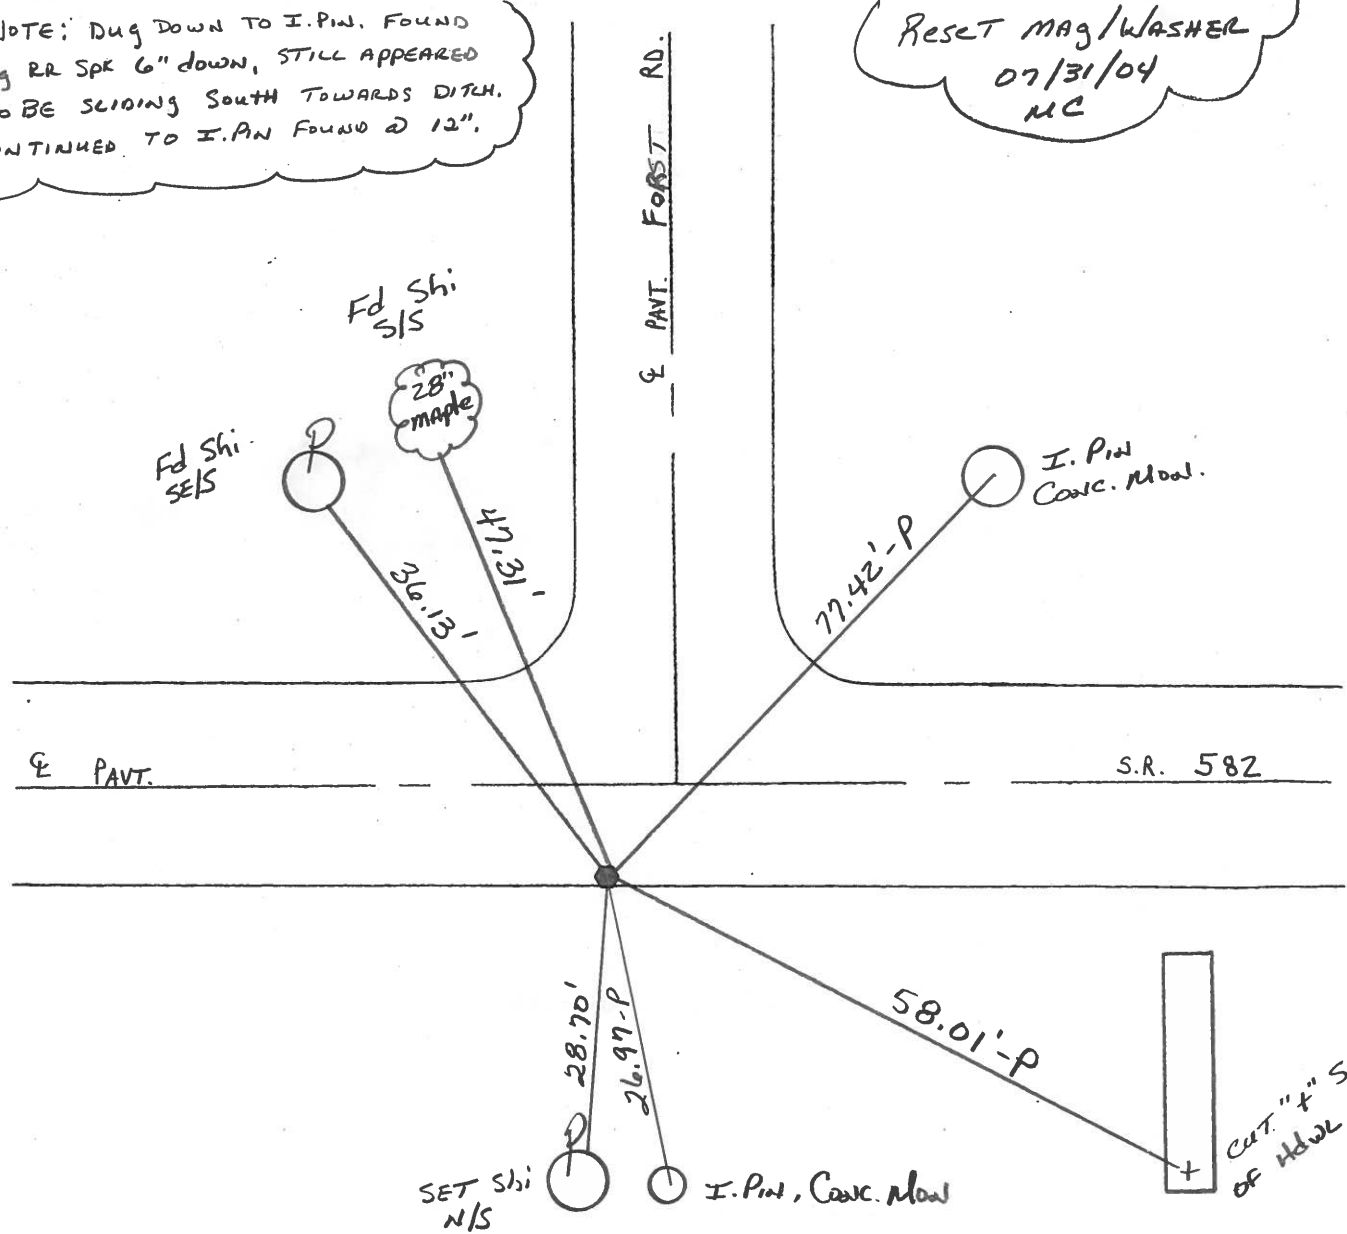 NOTE: Dug DOWN TO I.PIN. FOUND
RR SpK 6" down, STILL APPEARED
BE SLIDING South TOWARDS DITCH.
TO I.PIN FOUND @ 12".
Reset MAg/WASHER
07/31/04
MC
℄ PAVT. FORST RD.
Fd Shi
S/S
28"
MAple
Fd Shi
SE/S
P
I. PIN
CONC. MON.
47.31'
36.13'
77.42'-P
℄ PAVT.
S.R. 582
28.70'
26.97-P
58.01'-P
P
SET Shi
N/S
I. PIN, CONC. MON
CUT "+" S
OF HdWL